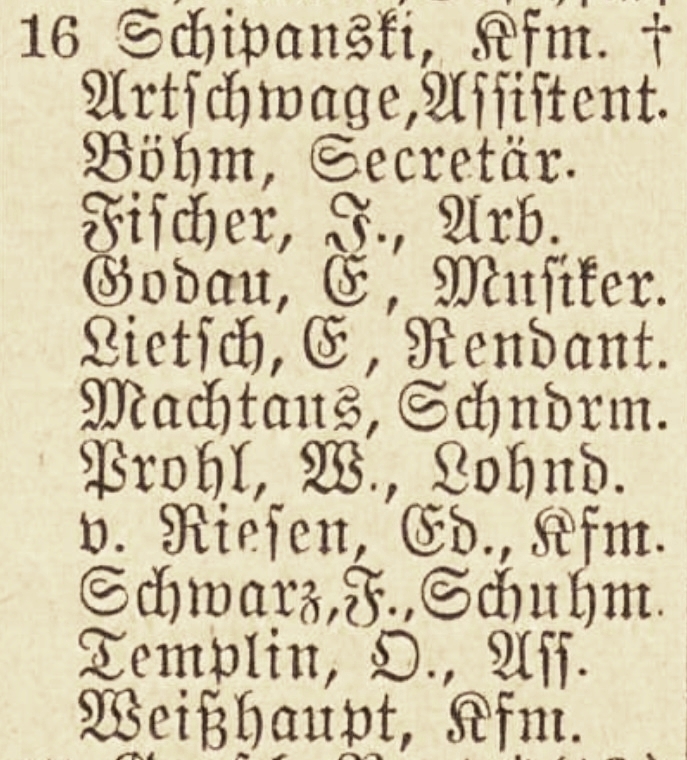 16 Schipanski, Kfm. †
Artschwage, Assistent.
Böhm, Secretär.
Fischer, J., Arb.
Godau, E, Musiker.
Lietsch, E, Rendant.
Machtans, Schndrm.
Prohl, W., Lohnd.
v. Riesen, Ed., Kfm.
Schwarz, F., Schuhm.
Templin, O., Ass.
Weißhaupt, Kfm.